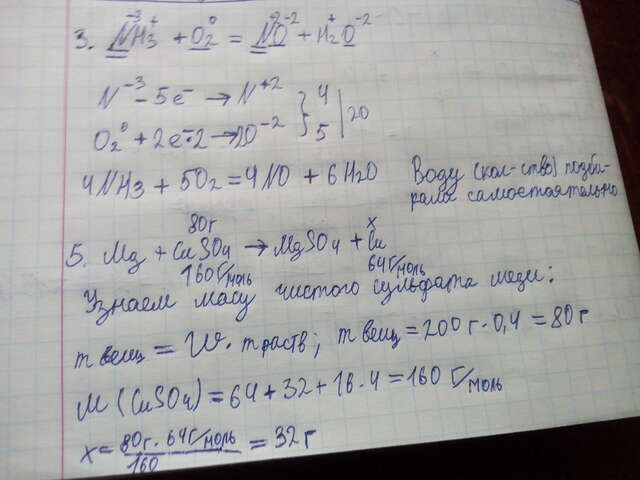 3. N⁻³H₃⁺ + O₂⁰ = N⁺²O⁻² + H₂⁺O⁻²
N⁻³ - 5e⁻ → N⁺² } 4 | 20
O₂⁰ + 2e⁻·2 → 2O⁻² } 5
4NH3 + 5O2 = 4NO + 6H2O
Воду (кол-ство) подби-
рала самостоятельно
80г x
5. Mg + CuSO4 → MgSO4 + Cu
160 г/моль 64г/моль
Узнаем масу чистого сульфата меди:
m вещ = W · m раств; m вещ = 200г · 0,4 = 80 г
M (CuSO4) = 64 + 32 + 16 · 4 = 160 г/моль
x = 80г · 64г/моль / 160 = 32 г